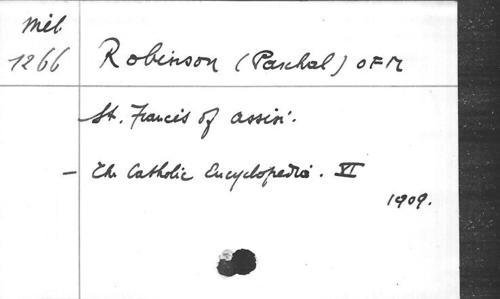 Mél
1266
Robinson (Paschal) OFM
St. Francis of Assisi.
– The Catholic Encyclopedia. VI
1909.